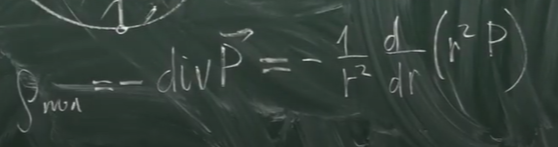 ρ = - div P⃗ = - 1/r² d/dr (r² P)